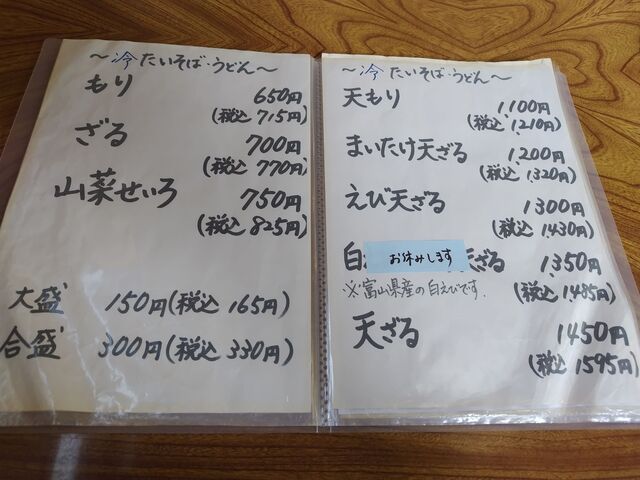 ～冷たいそば・うどん～
もり 650円
(税込 715円)
ざる 700円
(税込 770円)
山菜せいろ 750円
(税込 825円)
大盛 150円(税込 165円)
合盛 300円(税込 330円)
～冷たいそば・うどん～
天もり 1100円
(税込 1210円)
まいたけ天ざる 1200円
(税込 1320円)
えび天ざる 1300円
(税込 1430円)
白 お休みします 天ざる 1350円
※富山県産の白えびです. (税込 1485円)
天ざる 1450円
(税込 1595円)